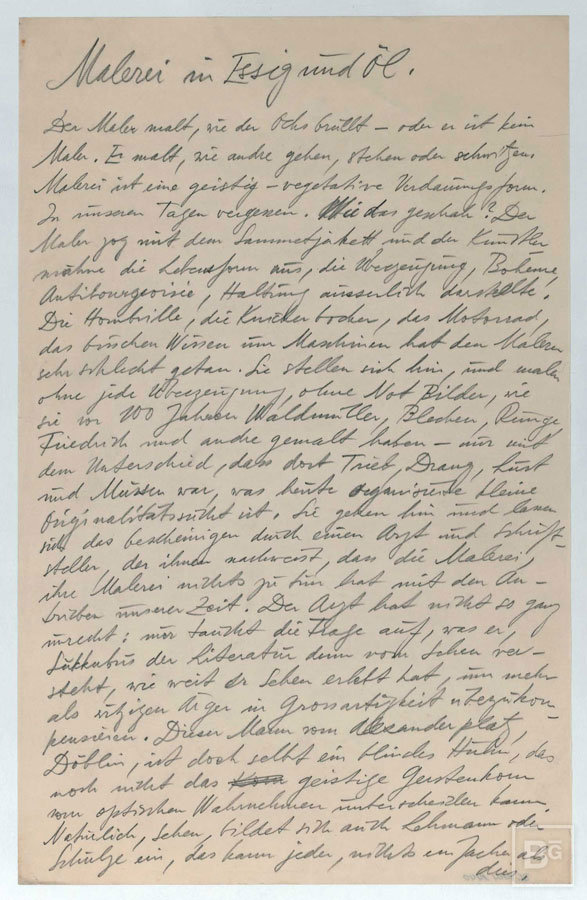 Malerei in Essig und Öl.
Der Maler malt, wie der Ochs brüllt – oder er ist kein
Maler. Er malt, wie andre gehen, stehen oder schwitzen.
Malerei ist eine geistig-vegetative Verdauungsform.
In unseren Tagen vergessen. Wie das geschah? Der
Maler zog mit dem Sammetjakett und der Künstler
mähne die Lebensform aus, die Überzeugung, Bohème,
Antibourgeoisie, Haltung äusserlich darstellte.
Die Hornbrille, die Knickerbocker, das Motorrad,
das bisschen Wissen um Maschinen hat den Malern
sehr schlecht getan. Sie stellen sich hin, und malen
ohne jede Überzeugung, ohne Not Bilder, wie
sie vor 100 Jahren Waldmüller, Blechen, Runge,
Friedrich und andre gemalt haben – nur mit
dem Unterschied, dass dort Trieb, Drang, Lust
und Müssen war, was heute organisierte kleine
Originalitätssucht ist. Sie gehen hin und lassen
sich das bescheinigen durch einen Arzt und Schrift-
steller, der ihnen nachweist, dass die Malerei,
ihre Malerei nichts zu tun hat mit den An-
trieben unserer Zeit. Der Arzt hat nicht so ganz
unrecht: nur taucht die Frage auf, was er,
Sukkubus der Literatur denn vom Sehen ver-
steht, wie weit er Sehen erlebt hat, um mehr
als witzigen Ärger in Grossartigkeit überzukom-
pensieren. Dieser Mann vom Alexanderplatz,
Döblin, ist doch selbst ein blindes Huhn, das
noch nicht das geistige Gerstenkorn
vom optischen Wahrnehmen unterscheiden kann.
Natürlich, Sehen, bildet sich auch Lehmann oder
Schulze ein, das kann jeder, nichts einfacher als
dies.
BG